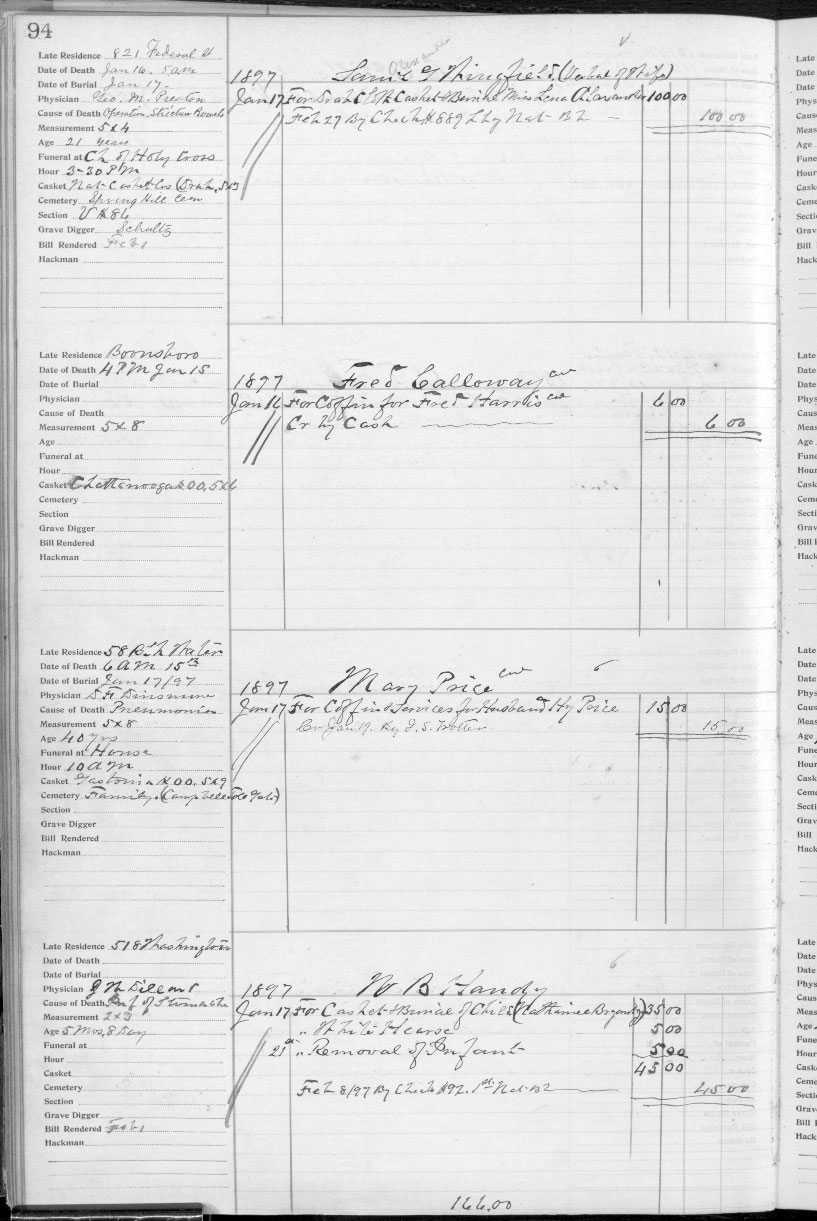 94
Late Residence 821 Federal St
Date of Death Jan 16. 5 am
Date of Burial Jan 17-
Physician Geo. M. Preston
Cause of Death Operation, Stricture Bowels
Measurement 5x4
Age 21 years
Funeral at Ch of Holy Cross
Hour 3-30 PM
Casket Nat Casket Co (Drab, 5x3
Cemetery Spring Hill Cem
Section V # 86
Grave Digger Schultz
Bill Rendered Feb 1
Hackman
1897 G Wingfield. (Verbal of Wife)
Jan 17 For Drab Cloth Casket & Burial Miss Lena Alexander 100 00
Feb 27 By Check # 889 Lby Nat Bk — 100 00
Late Residence Boonsboro
Date of Death 4 PM Jan 15
Date of Burial
Physician
Cause of Death
Measurement 5x8
Age
Funeral at
Hour
Casket Chattanooga # 00. 5x6
Cemetery
Section
Grave Digger
Bill Rendered
Hackman
1897 Fred Calloway col
Jan 16 For Coffin for Fred Harris col 6 00
Cr by Cash 6 00
Late Residence 58 Rsh Water
Date of Death 6 AM 15th
Date of Burial Jan 17/97
Physician Dinsmore
Cause of Death Pneumonia
Measurement 5x8
Age 40 yrs
Funeral at House
Hour 10 am
Casket Gastonia # 00. 5x9
Cemetery Family. (Campbell Gate)
Section
Grave Digger
Bill Rendered
Hackman
1897 Mary Price col 6
Jan 17 For Coffin & Services for Husband Hy Price 15 00
Cr Jan 19. By J. S. Trotter 15 00
Late Residence 518 Washington
Date of Death
Date of Burial
Physician J W Dillard
Cause of Death Inf of Stomach
Measurement 2x3
Age 5 Mos, 8 Day
Funeral at
Hour
Casket
Cemetery
Section
Grave Digger
Bill Rendered Feb 1
Hackman
1897 W B Handy 6
Jan 17 For Casket & Burial of Child 35 00
" White Hearse 5 00
21st " Removal of Infant 5 00
45 00
Feb 8/97 By Check # 92. 1st Nat Bk 45 00
166.00
Late
Date
Date
Phys
Caus
Meas
Age
Fune
Hour
Cask
Ceme
Secti
Grav
Bill
Hack